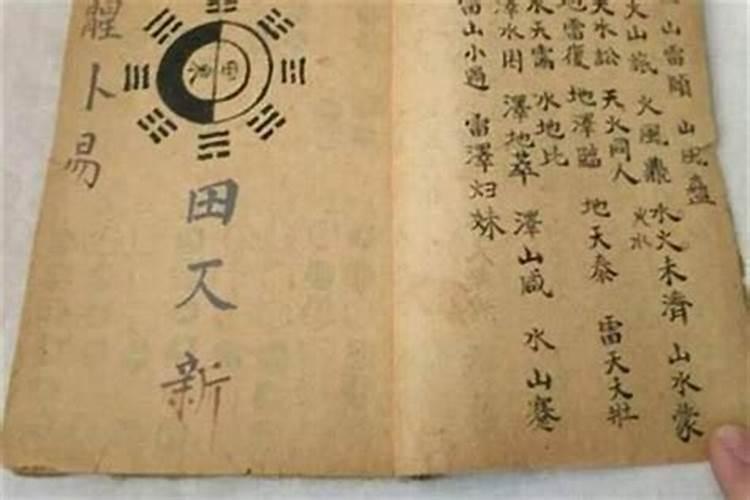 山雷頤
山風蠱
火水
水火未濟
山水蒙
火山旅
火風鼎
天水訟
天火同人
地雷復
地澤臨
地天泰
雷天大壯
水天需
水地比
澤水困
澤地萃
澤山咸
水山蹇
雷山小過
雷澤归妹
田
新
卜易